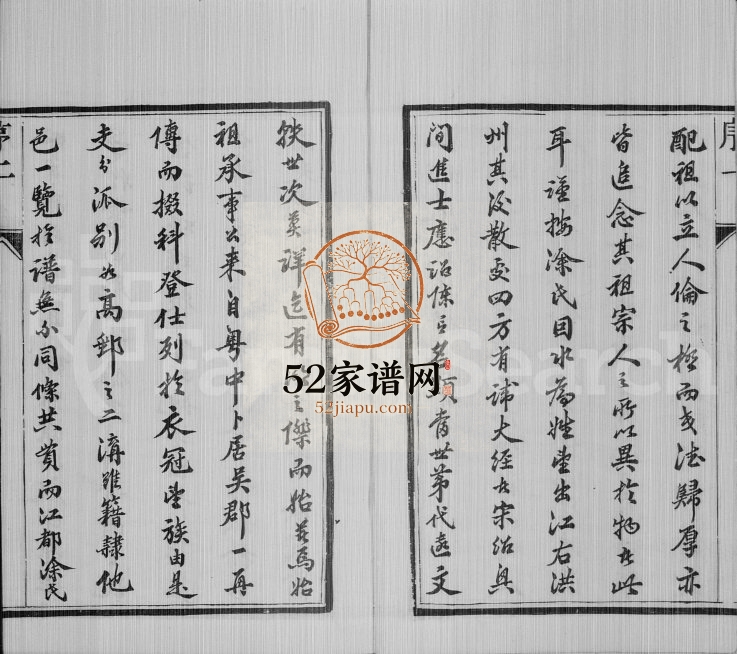 序一
配祖以立人倫之極而民德歸厚亦
皆追念其祖宗人之所以異於物者此
耳謹按涂氏因水為姓望出江右洪
州其後散處四方有諱大經者宋紹興
間進士應詔陳言名煩當世第代遠文
缺世次莫詳迄有之傑而始葚為始
祖承事公来自粤中卜居吴郡一再
傳而掇科登仕列於衣冠望族由是
支分派别如高郵之二溝雖籍隸他
邑一覽於譜無不同條共貫而江都涂氏
序二
52家谱网
52jiapu.com
Search